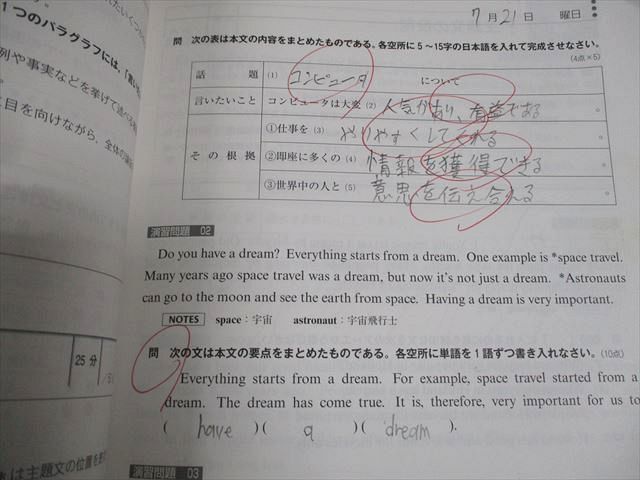 1つのパラグラフには，「言い
例や事実などを挙げて述べ
目を向けながら，全体の
25分
は主題文の位置を
7月21日 曜日
問 次の表は本文の内容をまとめたものである。各空所に5～15字の日本語を入れて完成させなさい。
(4点×5)
話題 (1) コンピュータ について
言いたいこと コンピュータは大変 (2) 人気があり、有益である 。
その根拠 ①仕事を (3) やりやすくしてくれる 。
②即座に多くの (4) 情報を獲得できる 。
③世界中の人と (5) 意思を伝え合える 。
演習問題 02
Do you have a dream? Everything starts from a dream. One example is *space travel.
Many years ago space travel was a dream, but now it's not just a dream. *Astronauts
can go to the moon and see the earth from space. Having a dream is very important.
NOTES space：宇宙 astronaut：宇宙飛行士
問 次の文は本文の要点をまとめたものである。各空所に単語を1語ずつ書き入れなさい。(10点)
Everything starts from a dream. For example, space travel started from a
dream. The dream has come true. It is, therefore, very important for us to
( have )( a )( dream ).
演習問題 03